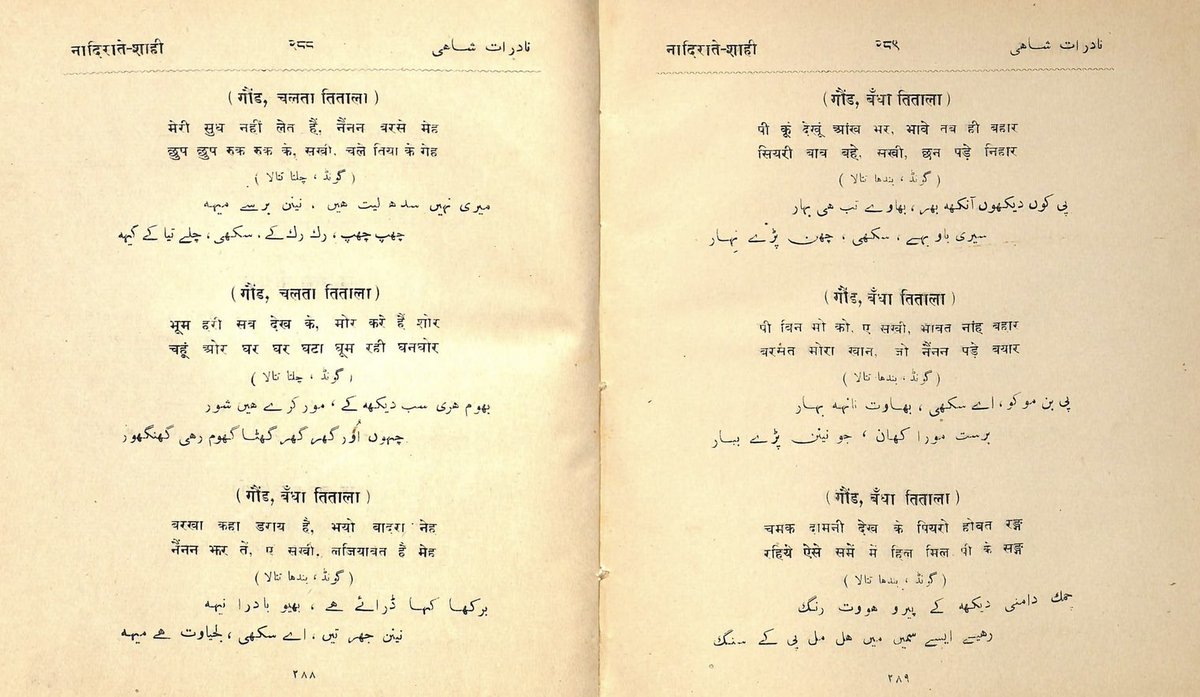 नादिराते-शाही २८८ نادرات شاهی
(गौंड, चलता तिताला)
मेरी सुध नहीं लेत हैं, नैंनन बरसे मेह
छुप छुप रुक रुक के, सखी, चले तिया के गेह
(گونڈ ، چلتا تتالا)
میری نہیں سدھ لیت هیں ، نینن برسے میهه
چھپ چھپ، رك رك کے، سکھی، چلے تیا کے گیهه
(गौंड, चलता तिताला)
भूम हरी सब देख के, मोर करे हैं शोर
चहूं ओर घर घर घटा घूम रही घनघोर
(گونڈ ، چلتا تتالا)
بھوم هری سب دیکھه کے ، مور کرے هیں شور
چہوں اُور گھر گھر گھٹا گھوم رهی گھنگھور
(गौंड, बँधा तिताला)
बरखा कहा डराय है, भयो बादरा नेह
नैंनन झर तें, ए सखी, लजियावत है मेह
(گونڈ ، بندھا تتالا)
برکھا کہا ڈرائے هے ، بھیو بادرا نیهه
نینن جھر تیں، اے سکھی، لجیاوت هے میهه
۲۸۸
नादिराते-शाही २८९ نادرات شاهی
(गौंड, बँधा तिताला)
पी कूं देखूं आंख भर, भावे तब ही बहार
सियरी बाव बहे, सखी, छन पड़े निहार
(گونڈ ، بندھا تتالا)
پی کوں دیکھوں آنکھه بھر، بھاوے تب هی بہار
سیری باو بہے ، سکھی ، چھن پڑے نہار
(गौंड, बँधा तिताला)
पी बिन मो को, ए सखी, भावत नांह बहार
बरसत मोरा खान, जो नैंनन पड़े बयार
(گونڈ ، بندھا تتالا)
پی بن موکو، اے سکھی، بھاوت نانهه بہار
برست مورا کھان ، جو نینن پڑے بیار
(गौंड, बँधा तिताला)
चमक दामनी देख के पियरो होवत रङ्ग
रहिये ऐसे समें में हिल मिल पी के सङ्ग
(گونڈ ، بندھا تتالا)
چمك دامنی دیکھه کے پیرو هووت رنگ
رهیے ایسے سمیں میں هل مل پی کے سنگ
۲۸۹